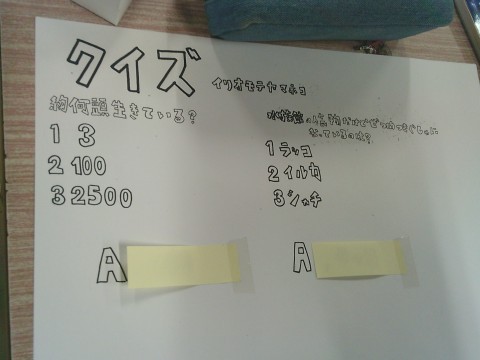 クイズ
イリオモテヤマネコ
約何頭生きている?
1 3
2 100
3 2500
A
水族館
1 ラッコ
2 イルカ
3 シャチ
A